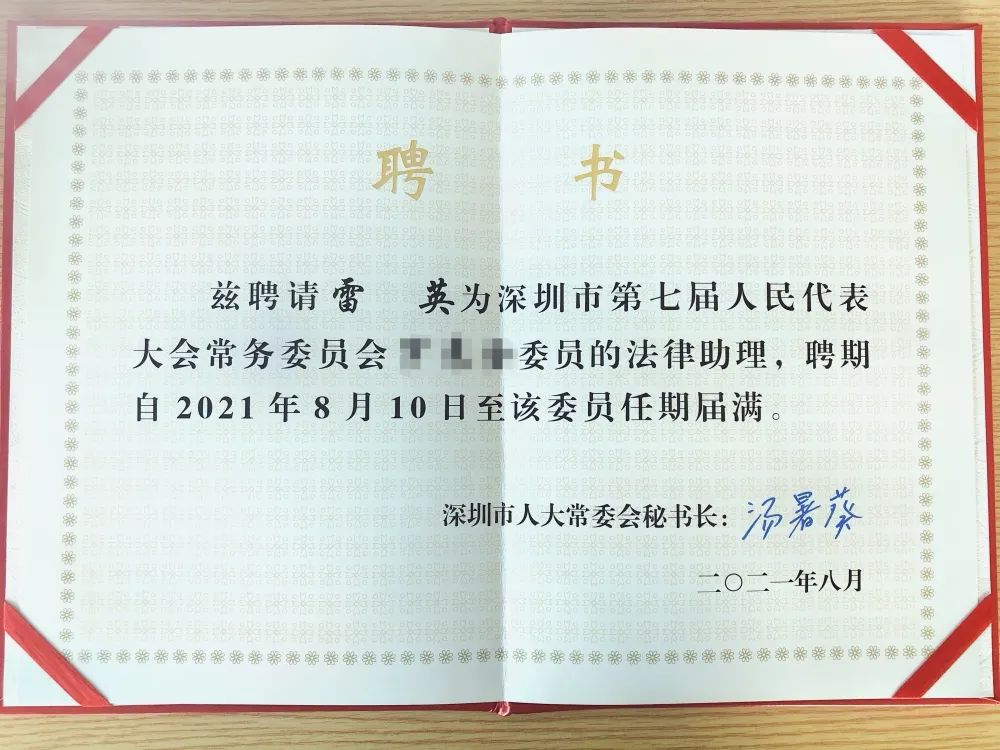 聘 书
兹聘请雷 英为深圳市第七届人民代表
大会常务委员会 委员的法律助理，聘期
自 2021 年 8 月 10 日至该委员任期届满。
深圳市人大常委会秘书长：汤暑葵
二〇二一年八月